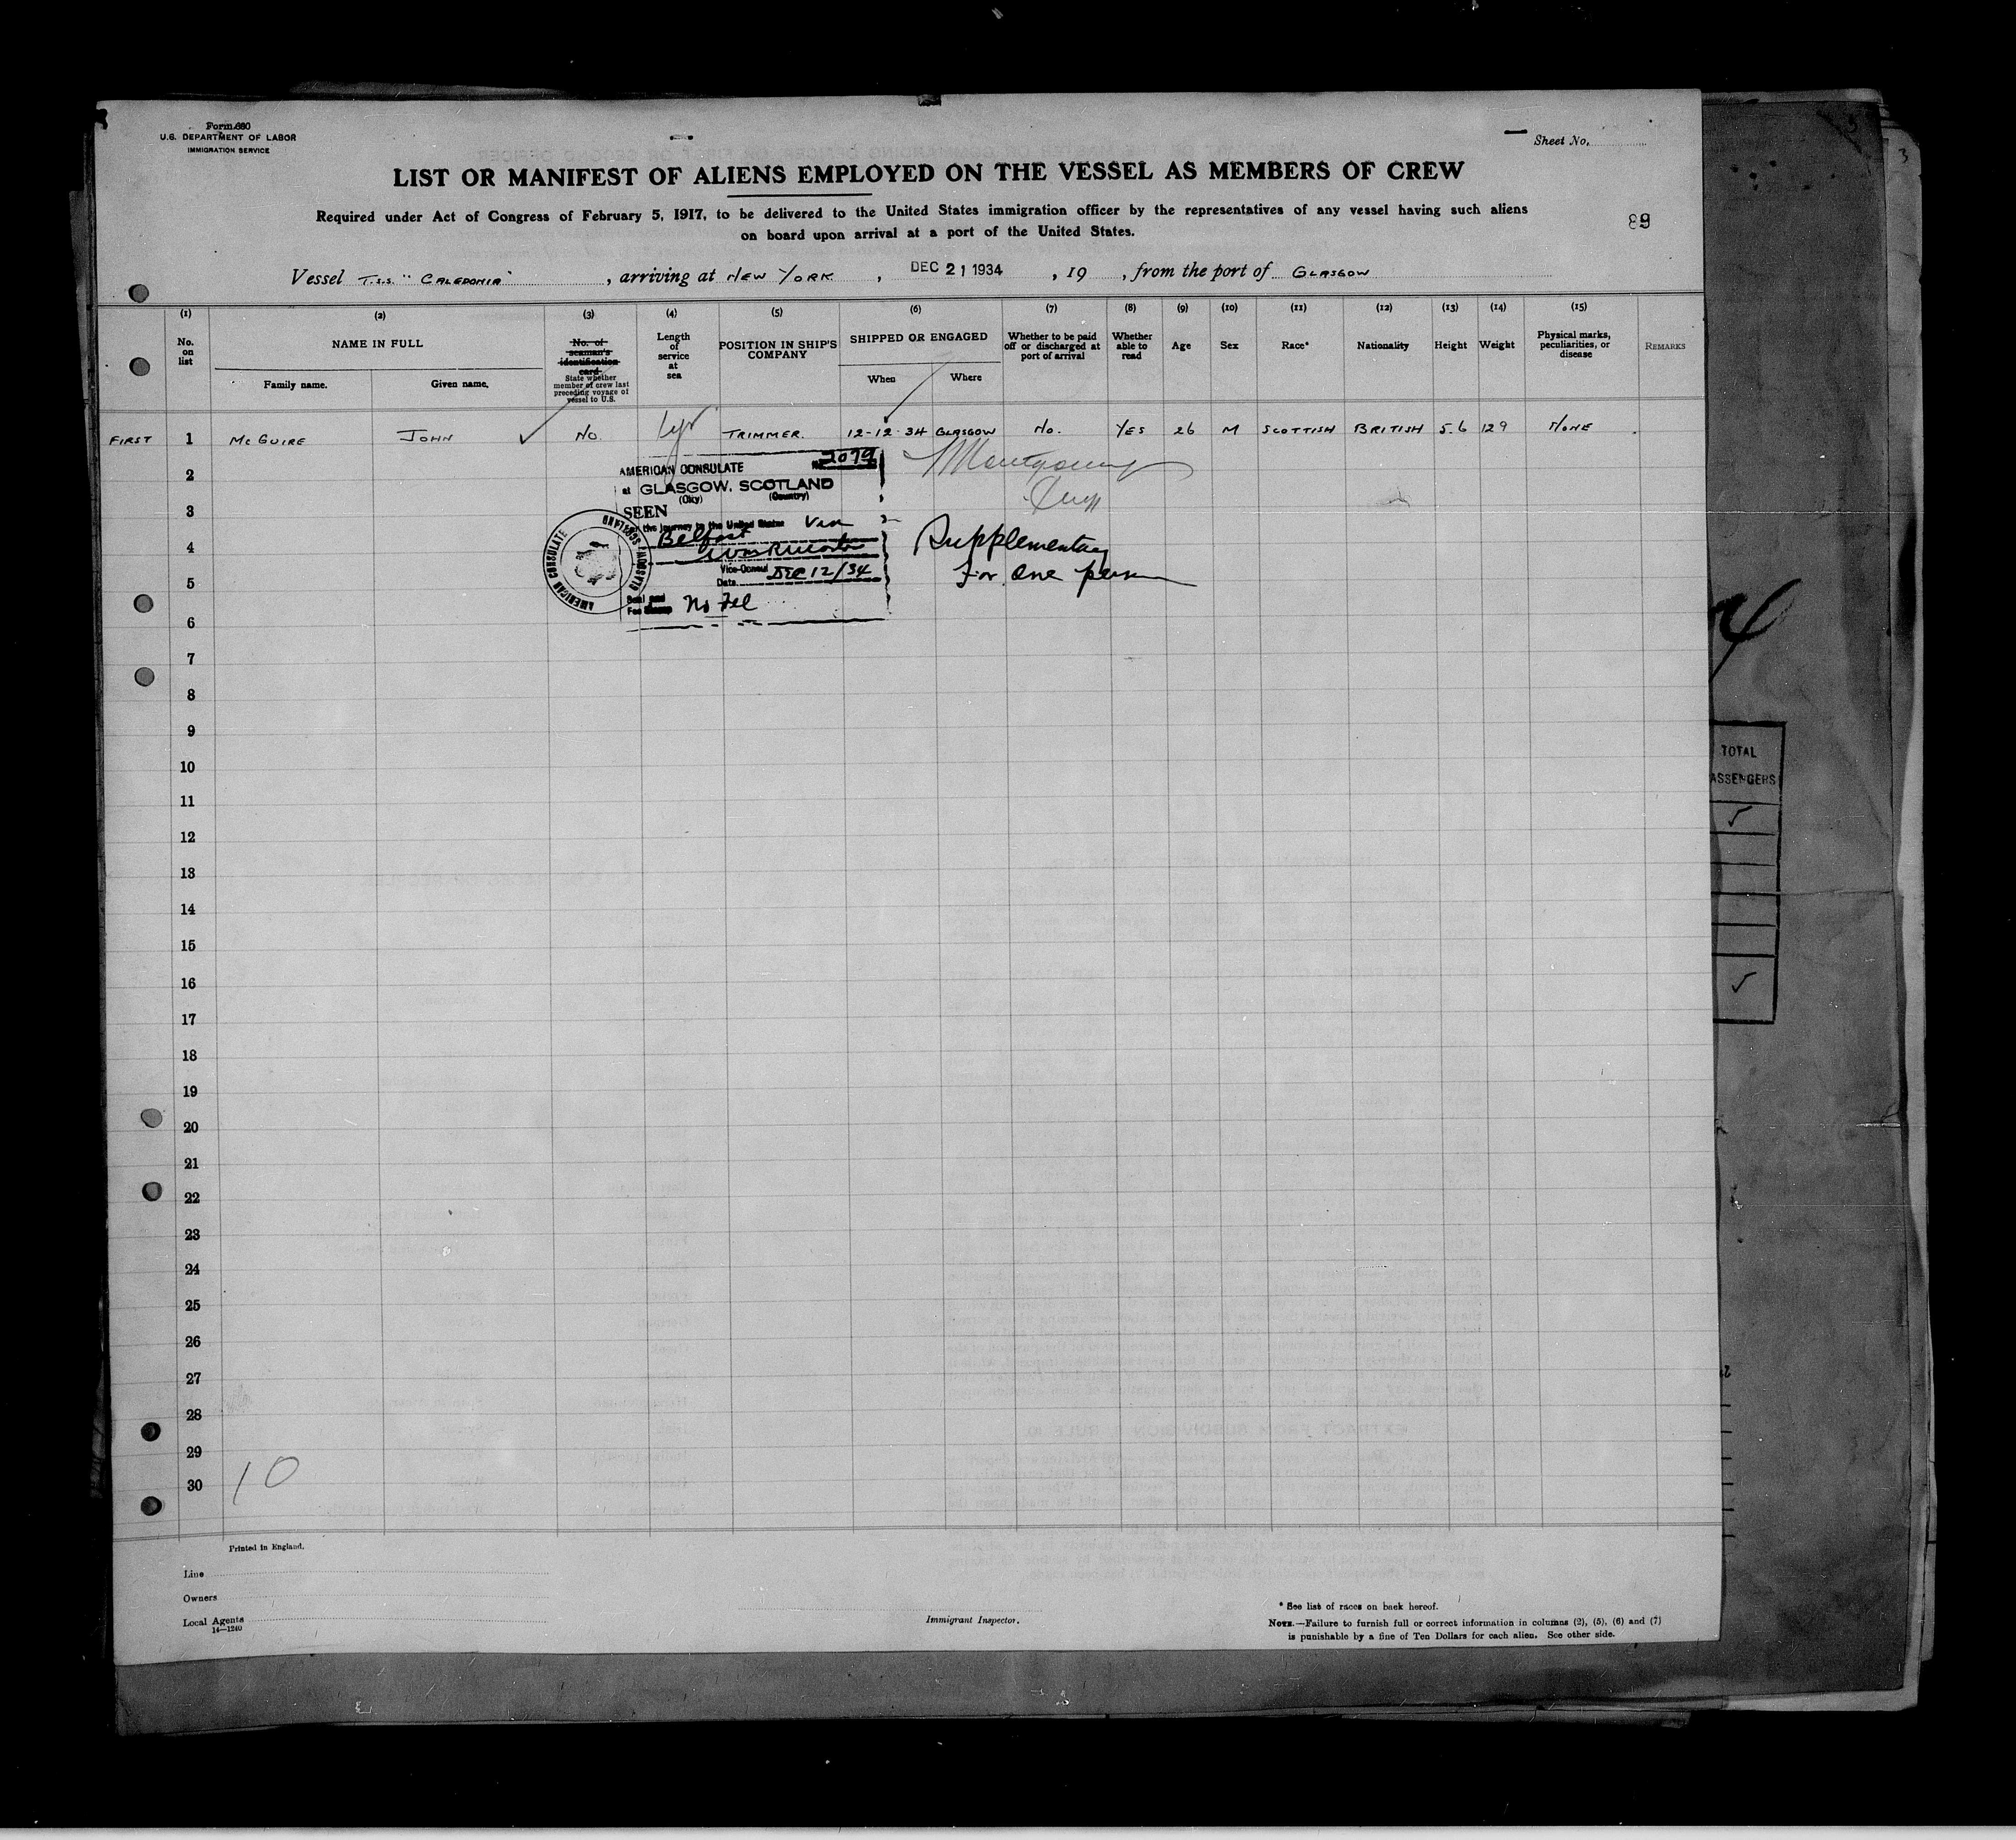 Form 680
U.S. DEPARTMENT OF LABOR
IMMIGRATION SERVICE
Sheet No.
LIST OR MANIFEST OF ALIENS EMPLOYED ON THE VESSEL AS MEMBERS OF CREW
Required under Act of Congress of February 5, 1917, to be delivered to the United States immigration officer by the representatives of any vessel having such aliens
on board upon arrival at a port of the United States.
89
Vessel T.S.S. "CALEDONIA", arriving at NEW YORK, DEC 21 1934, 19 , from the port of GLASGOW
(1) (2) (3) (4) (5) (6) (7) (8) (9) (10) (11) (12) (13) (14) (15)
No. on list
NAME IN FULL
Family name. Given name.
No. of seaman's identification card
State whether member of crew last preceding voyage of vessel to U.S.
Length of service at sea
POSITION IN SHIP'S COMPANY
SHIPPED OR ENGAGED
When Where
Whether to be paid off or discharged at port of arrival
Whether able to read
Age
Sex
Race*
Nationality
Height
Weight
Physical marks, peculiarities, or disease
REMARKS
FIRST 1 McGUIRE JOHN ✓ No. 1 yr TRIMMER. 12-12-34 GLASGOW No. YES 26 M SCOTTISH BRITISH 5.6 129 NONE
2
3
4
5
6
7
8
9
10
11
12
13
14
15
16
17
18
19
20
21
22
23
24
25
26
27
28
29
30
AMERICAN CONSULATE 2079
at GLASGOW, SCOTLAND
(City) (Country)
SEEN
for the journey to the United States Via
Belfast
Vice-Consul
Date DEC 12/34
Seal and
Fee Stamp No Fee
AMERICAN CONSULATE GLASGOW, SCOTLAND
Montgomery
Supplementary
For one person
10
TOTAL
PASSENGERS
✓
✓
3
Printed in England.
Line
Owners
Local Agents
14—1240
Immigrant Inspector.
* See list of races on back hereof.
NOTE.—Failure to furnish full or correct information in columns (2), (5), (6) and (7)
is punishable by a fine of Ten Dollars for each alien. See other side.